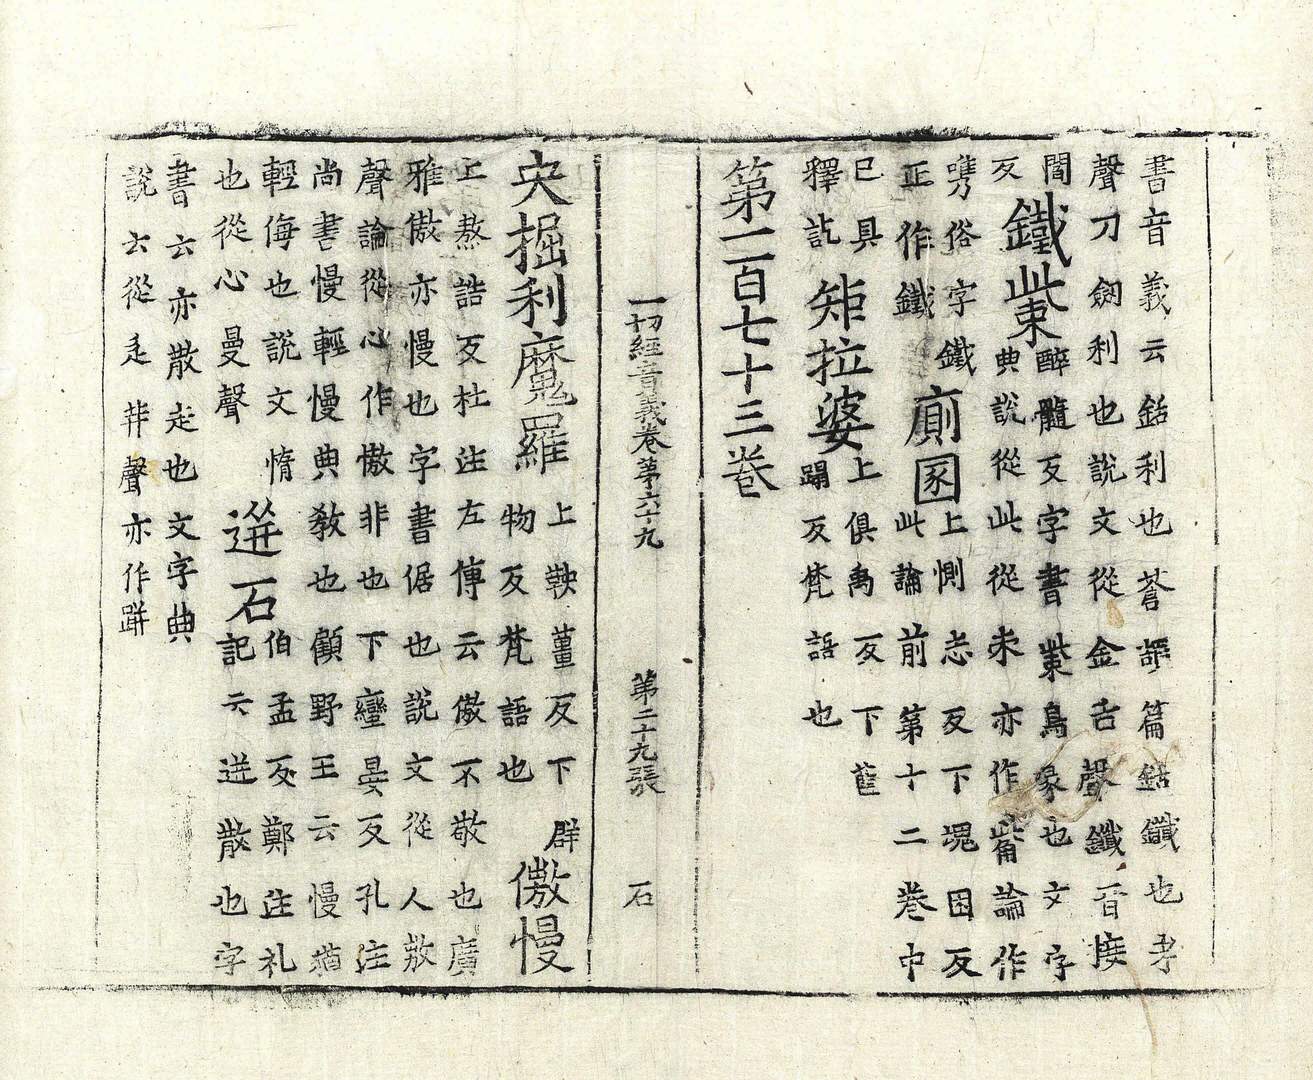 書音義云銛利也蒼頡篇銛鑯也考
聲刀劒利也說文從金舌聲鑯音接
間
反
鐵㭰
醉髓反字書㭰鳥喙也文字
典說從此從朿亦作觜論作
㗱俗字鐵
正作鐵
廁圂
上惻恣反下塊困反
此論前第十二卷中
已具
釋訖
矩拉婆
上俱禹反下藍
蹋反梵語也
第一百七十三卷
一切經音義卷第六十九 第二十九張 石
央掘利魔羅
上鞅薑反下群
物反梵語也
傲慢
上熬誥反杜注左傳云傲不敬也廣
雅傲亦慢也字書倨也說文從人敖
聲論從心作憿非也下蠻晏反孔注
尚書慢輕慢典教也顧野王云慢猶
輕侮也說文惰
也從心曼聲
迸石
伯孟反鄭注礼
記云迸散也字
書云亦散走也文字典
說云從辵并聲亦作跰